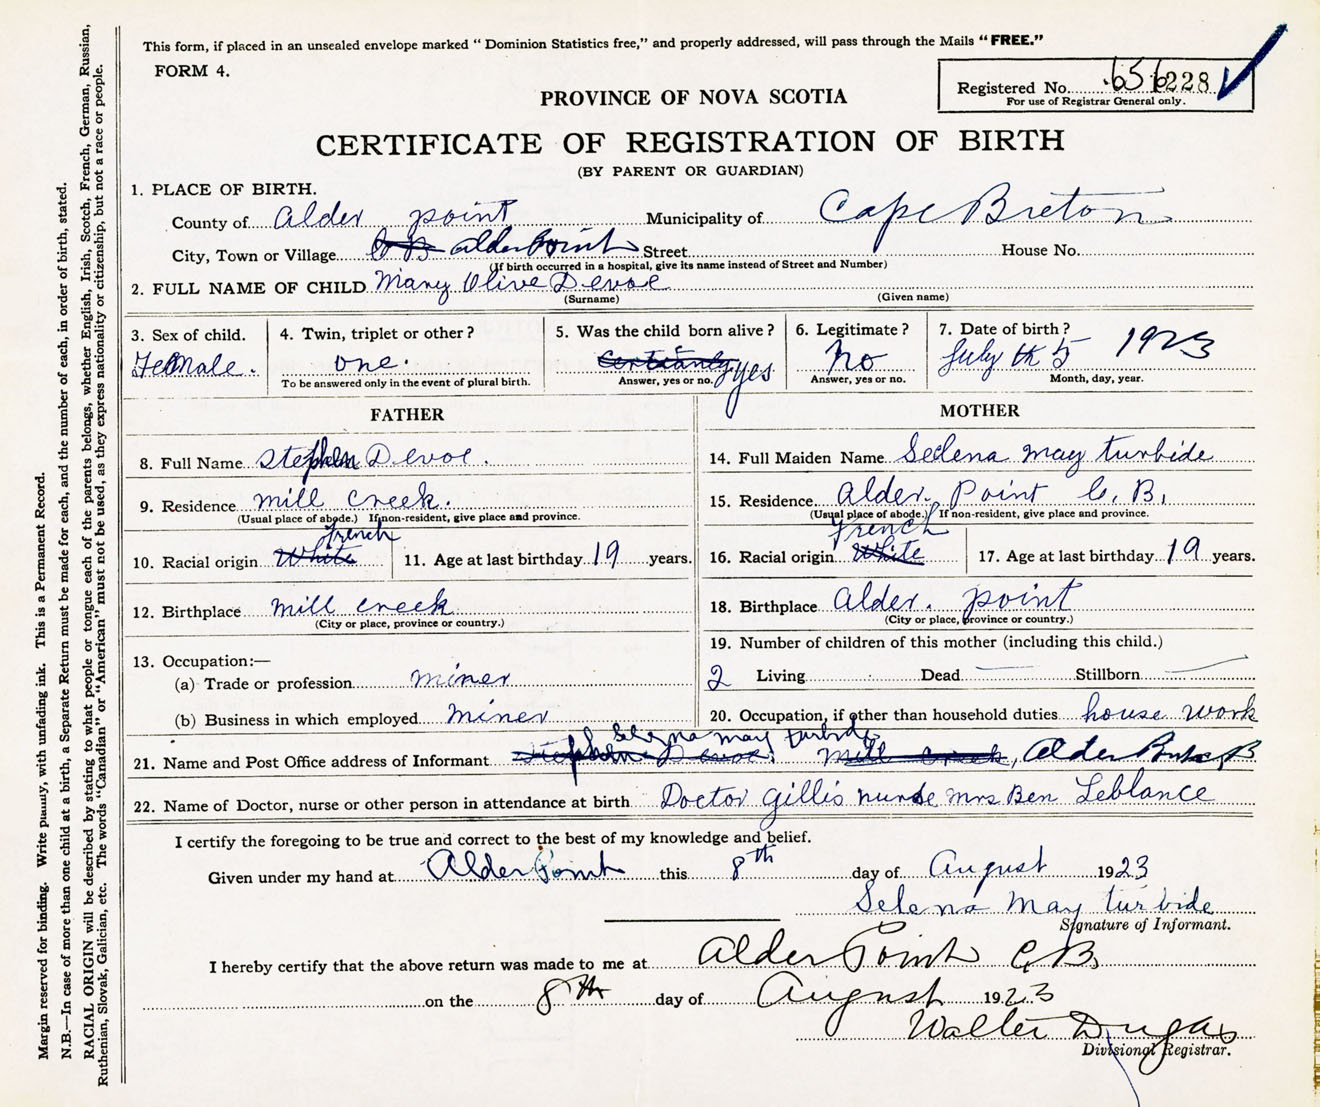 This form, if placed in an unsealed envelope marked “ Dominion Statistics free,” and properly addressed, will pass through the Mails “FREE.”
FORM 4.
Registered No. 228
For use of Registrar General only.
PROVINCE OF NOVA SCOTIA
CERTIFICATE OF REGISTRATION OF BIRTH
(BY PARENT OR GUARDIAN)
1. PLACE OF BIRTH.
County of Alder point Municipality of Cape Breton
City, Town or Village C B Alder Point Street House No.
(If birth occurred in a hospital, give its name instead of Street and Number)
2. FULL NAME OF CHILD Mary Olive Devoe
(Surname) (Given name)
3. Sex of child. 4. Twin, triplet or other? 5. Was the child born alive? 6. Legitimate? 7. Date of birth?
Female. one. Certianly yes No July th 5 1923
To be answered only in the event of plural birth. Answer, yes or no. Answer, yes or no. Month, day, year.
FATHER
8. Full Name Stephen Devoe.
9. Residence mill creek.
(Usual place of abode.) If non-resident, give place and province.
French
10. Racial origin White 11. Age at last birthday 19 years.
12. Birthplace mill creek
(City or place, province or country.)
13. Occupation:—
(a) Trade or profession miner
(b) Business in which employed miner
MOTHER
14. Full Maiden Name Selena may turbide
15. Residence Alder. Point C. B.
(Usual place of abode.) If non-resident, give place and province.
French
16. Racial origin White 17. Age at last birthday 19 years.
18. Birthplace Alder. point
(City or place, province or country.)
19. Number of children of this mother (including this child.)
2 Living Dead Stillborn
20. Occupation, if other than household duties house work
Selena may turbide
21. Name and Post Office address of Informant Stephen Devoe. Mill Creek, Alder Point C B
22. Name of Doctor, nurse or other person in attendance at birth Doctor Gillis nurse mrs Ben Leblance
I certify the foregoing to be true and correct to the best of my knowledge and belief.
Given under my hand at Alder Point this 8th day of August 1923
Selena May turbide
Signature of Informant.
I hereby certify that the above return was made to me at Alder Point C.B.
on the 8th day of August 1923
Walter Dugas
Divisional Registrar.
Margin reserved for binding. Write plainly, with unfading ink. This is a Permanent Record.
N.B.—In case of more than one child at a birth, a Separate Return must be made for each, and the number of each, in order of birth, stated.
RACIAL ORIGIN will be described by stating to what people or tongue each of the parents belongs, whether English, Irish, Scotch, French, German, Russian,
Ruthenian, Slovak, Galician, etc. The words “Canadian” or “American” must not be used, as they express nationality or citizenship, but not a race or people.